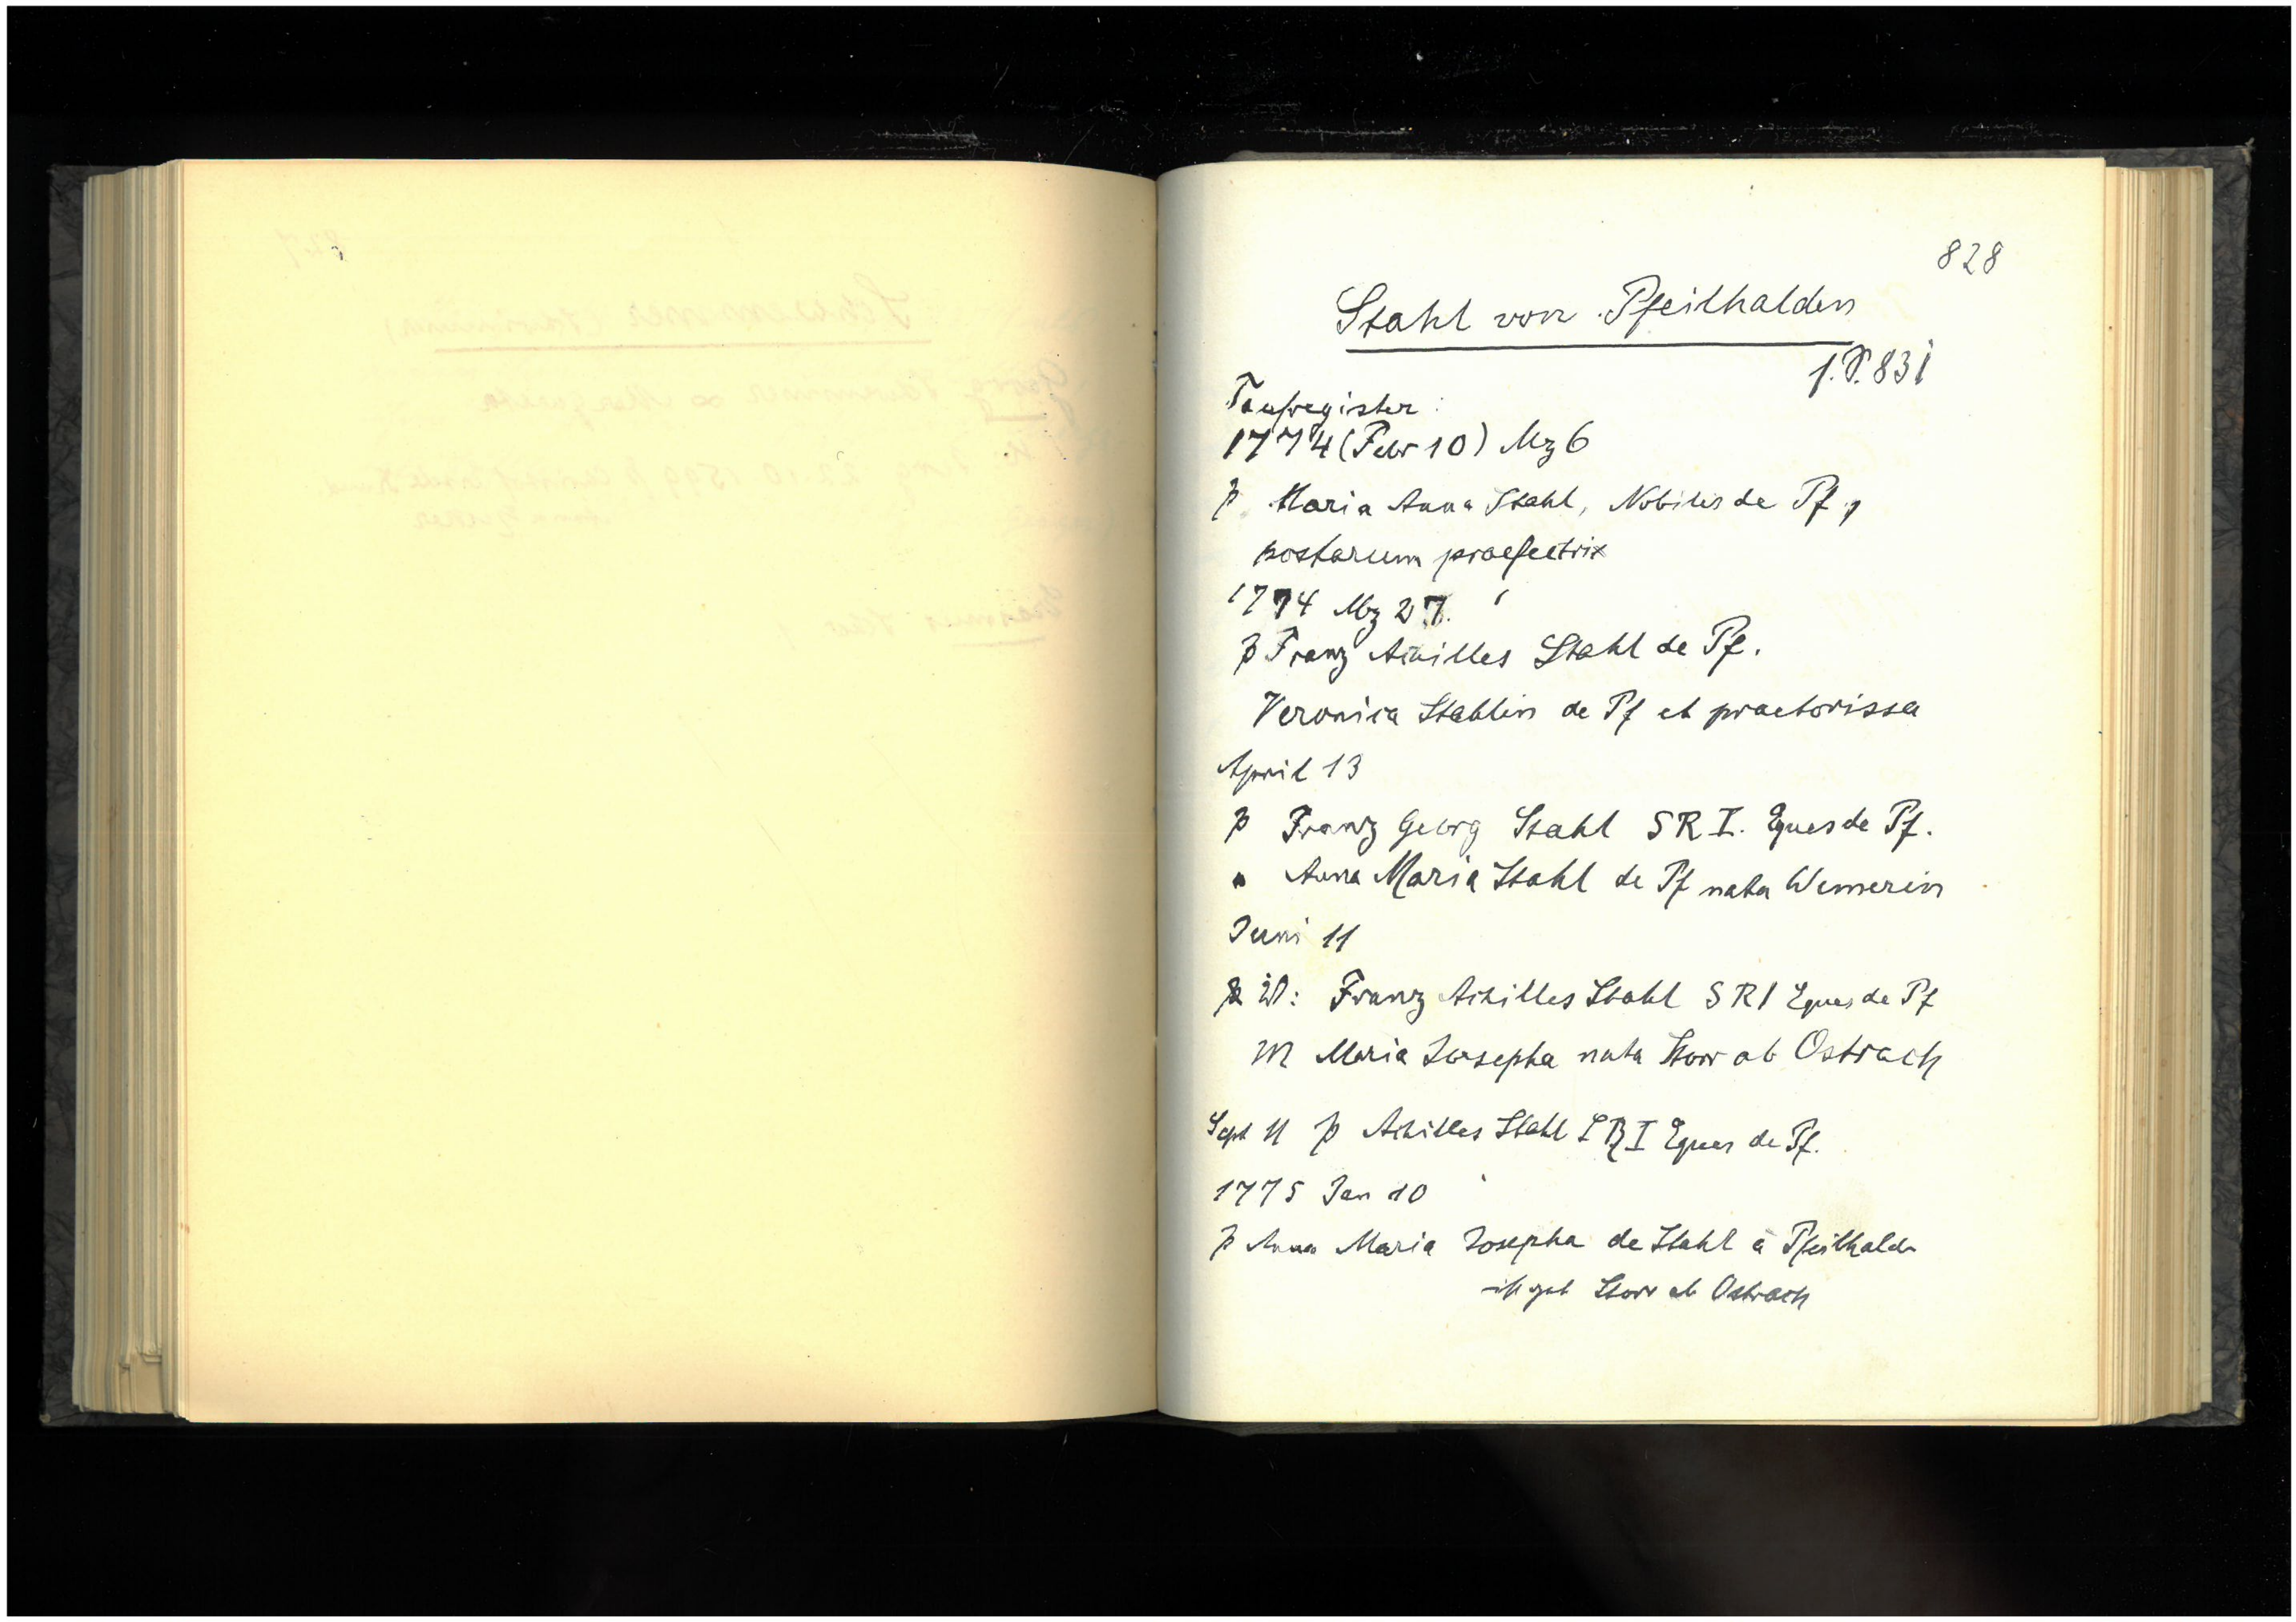 828
Stahl von Pfeilhalden
s. S. 831
Taufregister:
1774 (Febr 10) Mz 6
p Maria Anna Stahl, Nobilis de Pf,
postarum praefectrix
1774 Mz 27.
p Franz Achilles Stahl de Pf.
Veronica Stahlin de Pf et praetorissa
April 13
p Franz Georg Stahl S R I. Eques de Pf.
" Anna Maria Stahl de Pf nata
Juni 11
Franz Achilles Stahl S R I Eques de Pf
M Maria Josepha nata Storr ab Ostrach
Sept 11 p Achilles Stahl S R I Eques de Pf.
1775 Jan 10
p Anna Maria Josepha de Stahl à Pfeilhalden
geb Storr ab Ostrach